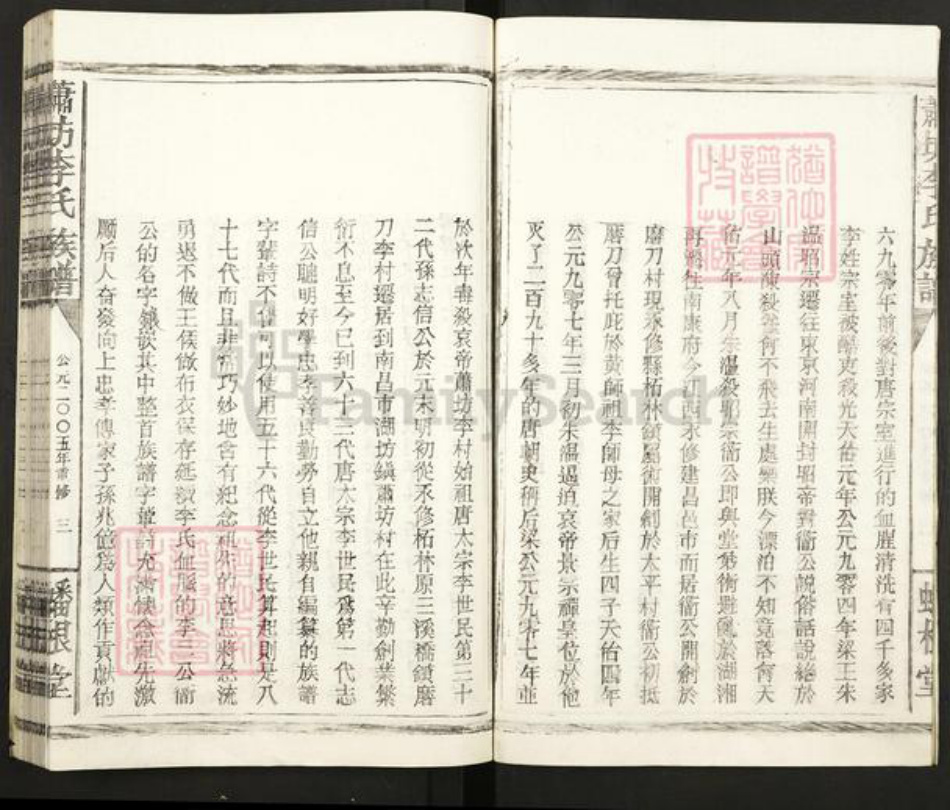 六九零年前後對唐宗室進行的血腥清洗有四千多家
李姓宗室被酷吏殺光天佑元年公元九零四年梁王朱
温昭宗遷往東京河南開封昭帝對衛公說俗話說絡於
山頭凍殺雀何不飛去生處樂朕今漂泊不知竟落何天
佑元年八月朱溫殺昭宗衛公即與堂弟術避亂於湖湘
再轉往南康府今江西永修建昌邑市而居衛公開創於
磨刀村現永修縣柘林鎮屬術開創於太平村衛公初抵
磨刀曾托庇於黄師祖李師母之家后生四子天佑四年
公元九零七年三月初朱溫逼迫哀帝景宗禪皇位於他
灭了二百九十多年的唐朝史稱后梁公元九零七年並
於次年毒殺哀帝蕭坊李村始祖唐太宗李世民第三十
二代孫志信公於元末明初從永修柘林原三溪橋鎮磨
刀李村遷居到南昌市湖坊鎮蕭坊村在此辛勤創業繁
衍不息至今已到六十三代唐太宗李世民爲第一代志
信公聰明好學忠孝善良勤勞自立他親自編纂的族譜
字輩詩不僅可以使用五十六代從李世民算起則是八
十七代而且非常巧妙地含有紀念祖先的意思將急流
勇退不做王侯做布衣保存延續李氏血脈的李三公衛
公的名字鑲嵌其中整首族譜字輩詩充滿懷念祖先激
勵后人奋發向上忠孝傳家子孫兆億爲人類作貢獻的
蕭坊李氏族譜
公元二〇〇五年重修
三
蟠根堂
FamilySearch